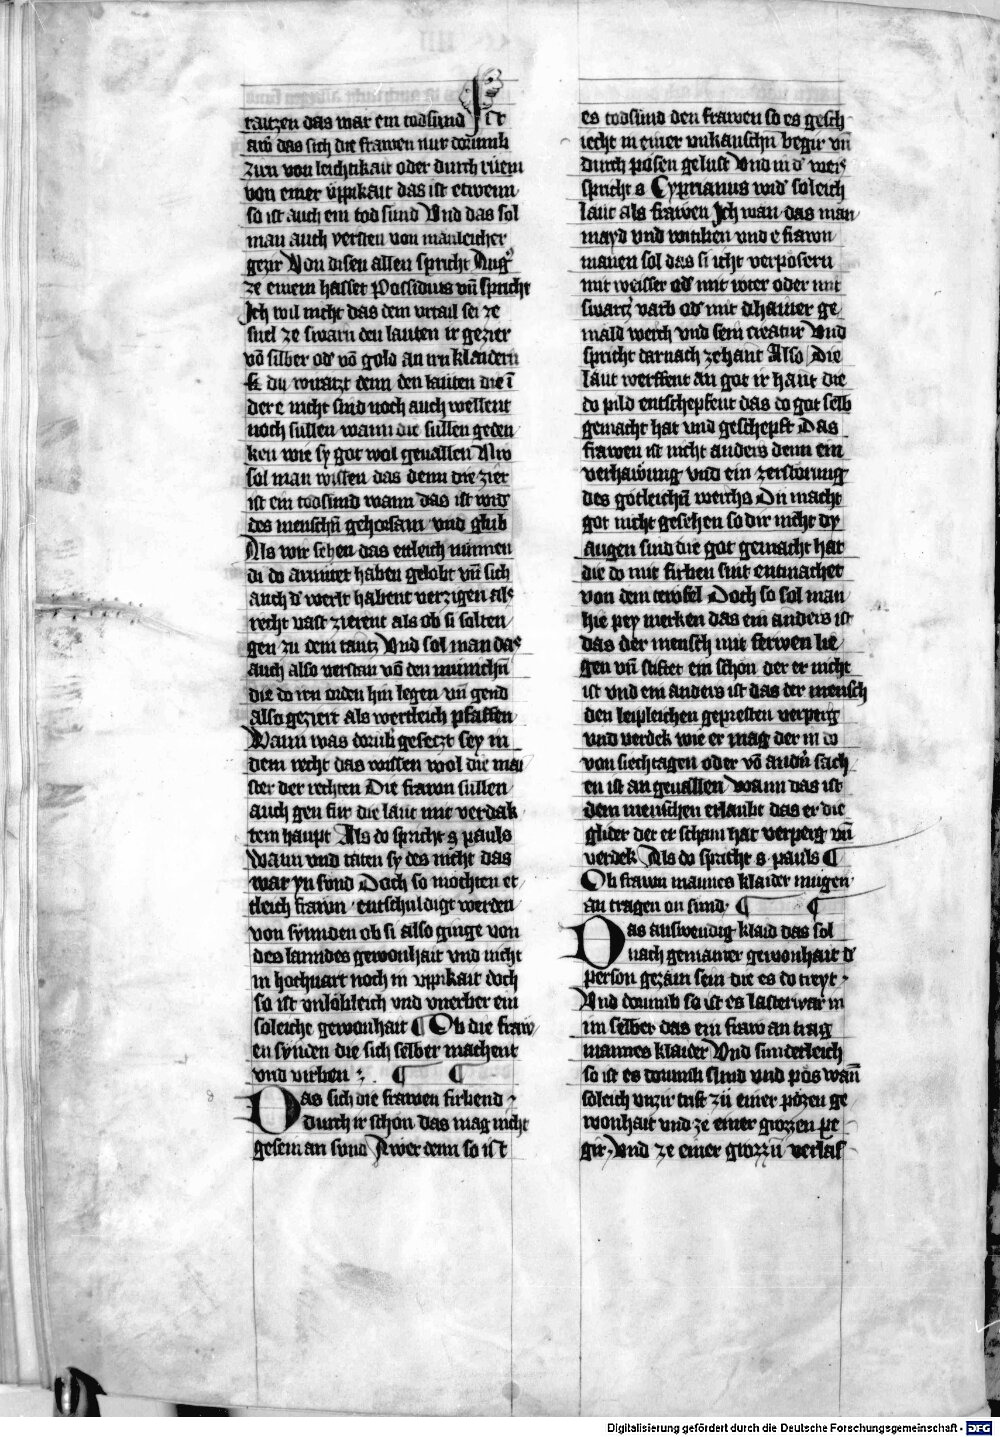 raitzen das war ein todsund Ist
aber das sich die frawen nur dorumb
ziern von leichtikait oder durch ruem
von einer uppikait das ist etwenn
so ist auch ein tod sund Und das sol
man auch versten von manleicher
gezir Von disen allen spricht Aug9
ze einem haisset Possidius vn̄ spricht
Ich wil nicht das dem urtail sei ze
snel ze swarn den lauten ir gezier
vō silber od' vō gold an irn klaidern
denn den lauten die ī
der e nicht sind noch auch wellent
noch sullen wann die sullen geden
ken wie sy got wol geuallen Nw
sol man wissen das denn die zier
ist ein todsund wann das ist wid'
des menschn̄ gehorsam und glub
Als wir sehen das etleich nunnen
di do armuet haben gelobt vn̄ sich
auch d' werlt habent verzigen als
recht vast zierent als ob si solten
gen zu dem tantz Und sol man das
auch also verstan vō den munichn̄
die do irn orden hin legen vn̄ gend
also geziert als werltleich pfaffen
Wann was dorub' gesetzt sey in
dem recht das wissen wol die mai
ster der rechten Die frawn sullen
auch gen fur die laut mit verdak
tem haupt Als do spricht s pauls
Wann und taten sy des nicht das
war yn sond Doch so mochten et
tleich frawn entschuldigt werden
von sunnden ob si also ginge von
des lanndes gewonhait und nicht
in hochuart noch in uppikait doch
so ist unlobleich und unerber ein
soleiche gewonhait ¶ Ob die fraw
en synden die sich selber machent
und virben ¶ ¶
Das sich die frawen firbend
durch ir schon das mag nicht
gesein an sund Awer denn so ist
es todsund den frawen so es gesch
iecht in einer unkauschn̄ begir vn̄
durch posen gelust Und in d' weis
spricht s Cyprianus wid' soleich
laut als frawen Ich wan das man
mayd und witiben und e frawn
manen sol das si icht verposern
mit weisser od' mit roter oder mit
swartz' varb od' mit dhainer ge
mald werch und sein creatur Und
spricht darnach zehant Also Die
laut werffent an got ir hant die
do pild entschepfent das do got selb
gemacht hat und geschepft Das
frawen ist nicht anders denn ein
verhawung und ein zerstorung
des gotleichn̄ werchs Du macht
got nicht gesehen so dir nicht dy
augen sind die got gemacht hat
die do mit firben sint entmachet
von dem tewfel Doch so sol man
hie pey merken das ein anders ist
das der mensch mit ferwen lie
gen vn̄ stiftet ein schon der er nicht
ist und ein anders ist das der mensch
den leipleichen gepresten verperig
und verdek wie er mag der in do
von siechtagen oder vō andn̄ sach
en ist an geuallen Wann das ist
dem menschen erlaubt das er die
glider der er scham hat verperg vn̄
verdek Als do spricht s pauls ¶
Ob frawn mannes klaider mugen
an tragen on sund ¶ ¶
Das auswendig klaid das sol
nach gemainer gewonhait d'
person gezam sein die es do treyt
Und dorumb so ist es lasterwar in
im selber das ein fraw an trag
mannes klaider Und sunderleich
so ist es dorumb sund und pos wan̄
soleich unzir trist zu einer pozen ge
wonhait und ze einer grozzen pe
gir Und ze einer grozzn̄ verlas
Digitalisierung gefördert durch die Deutsche Forschungsgemeinschaft - DFG